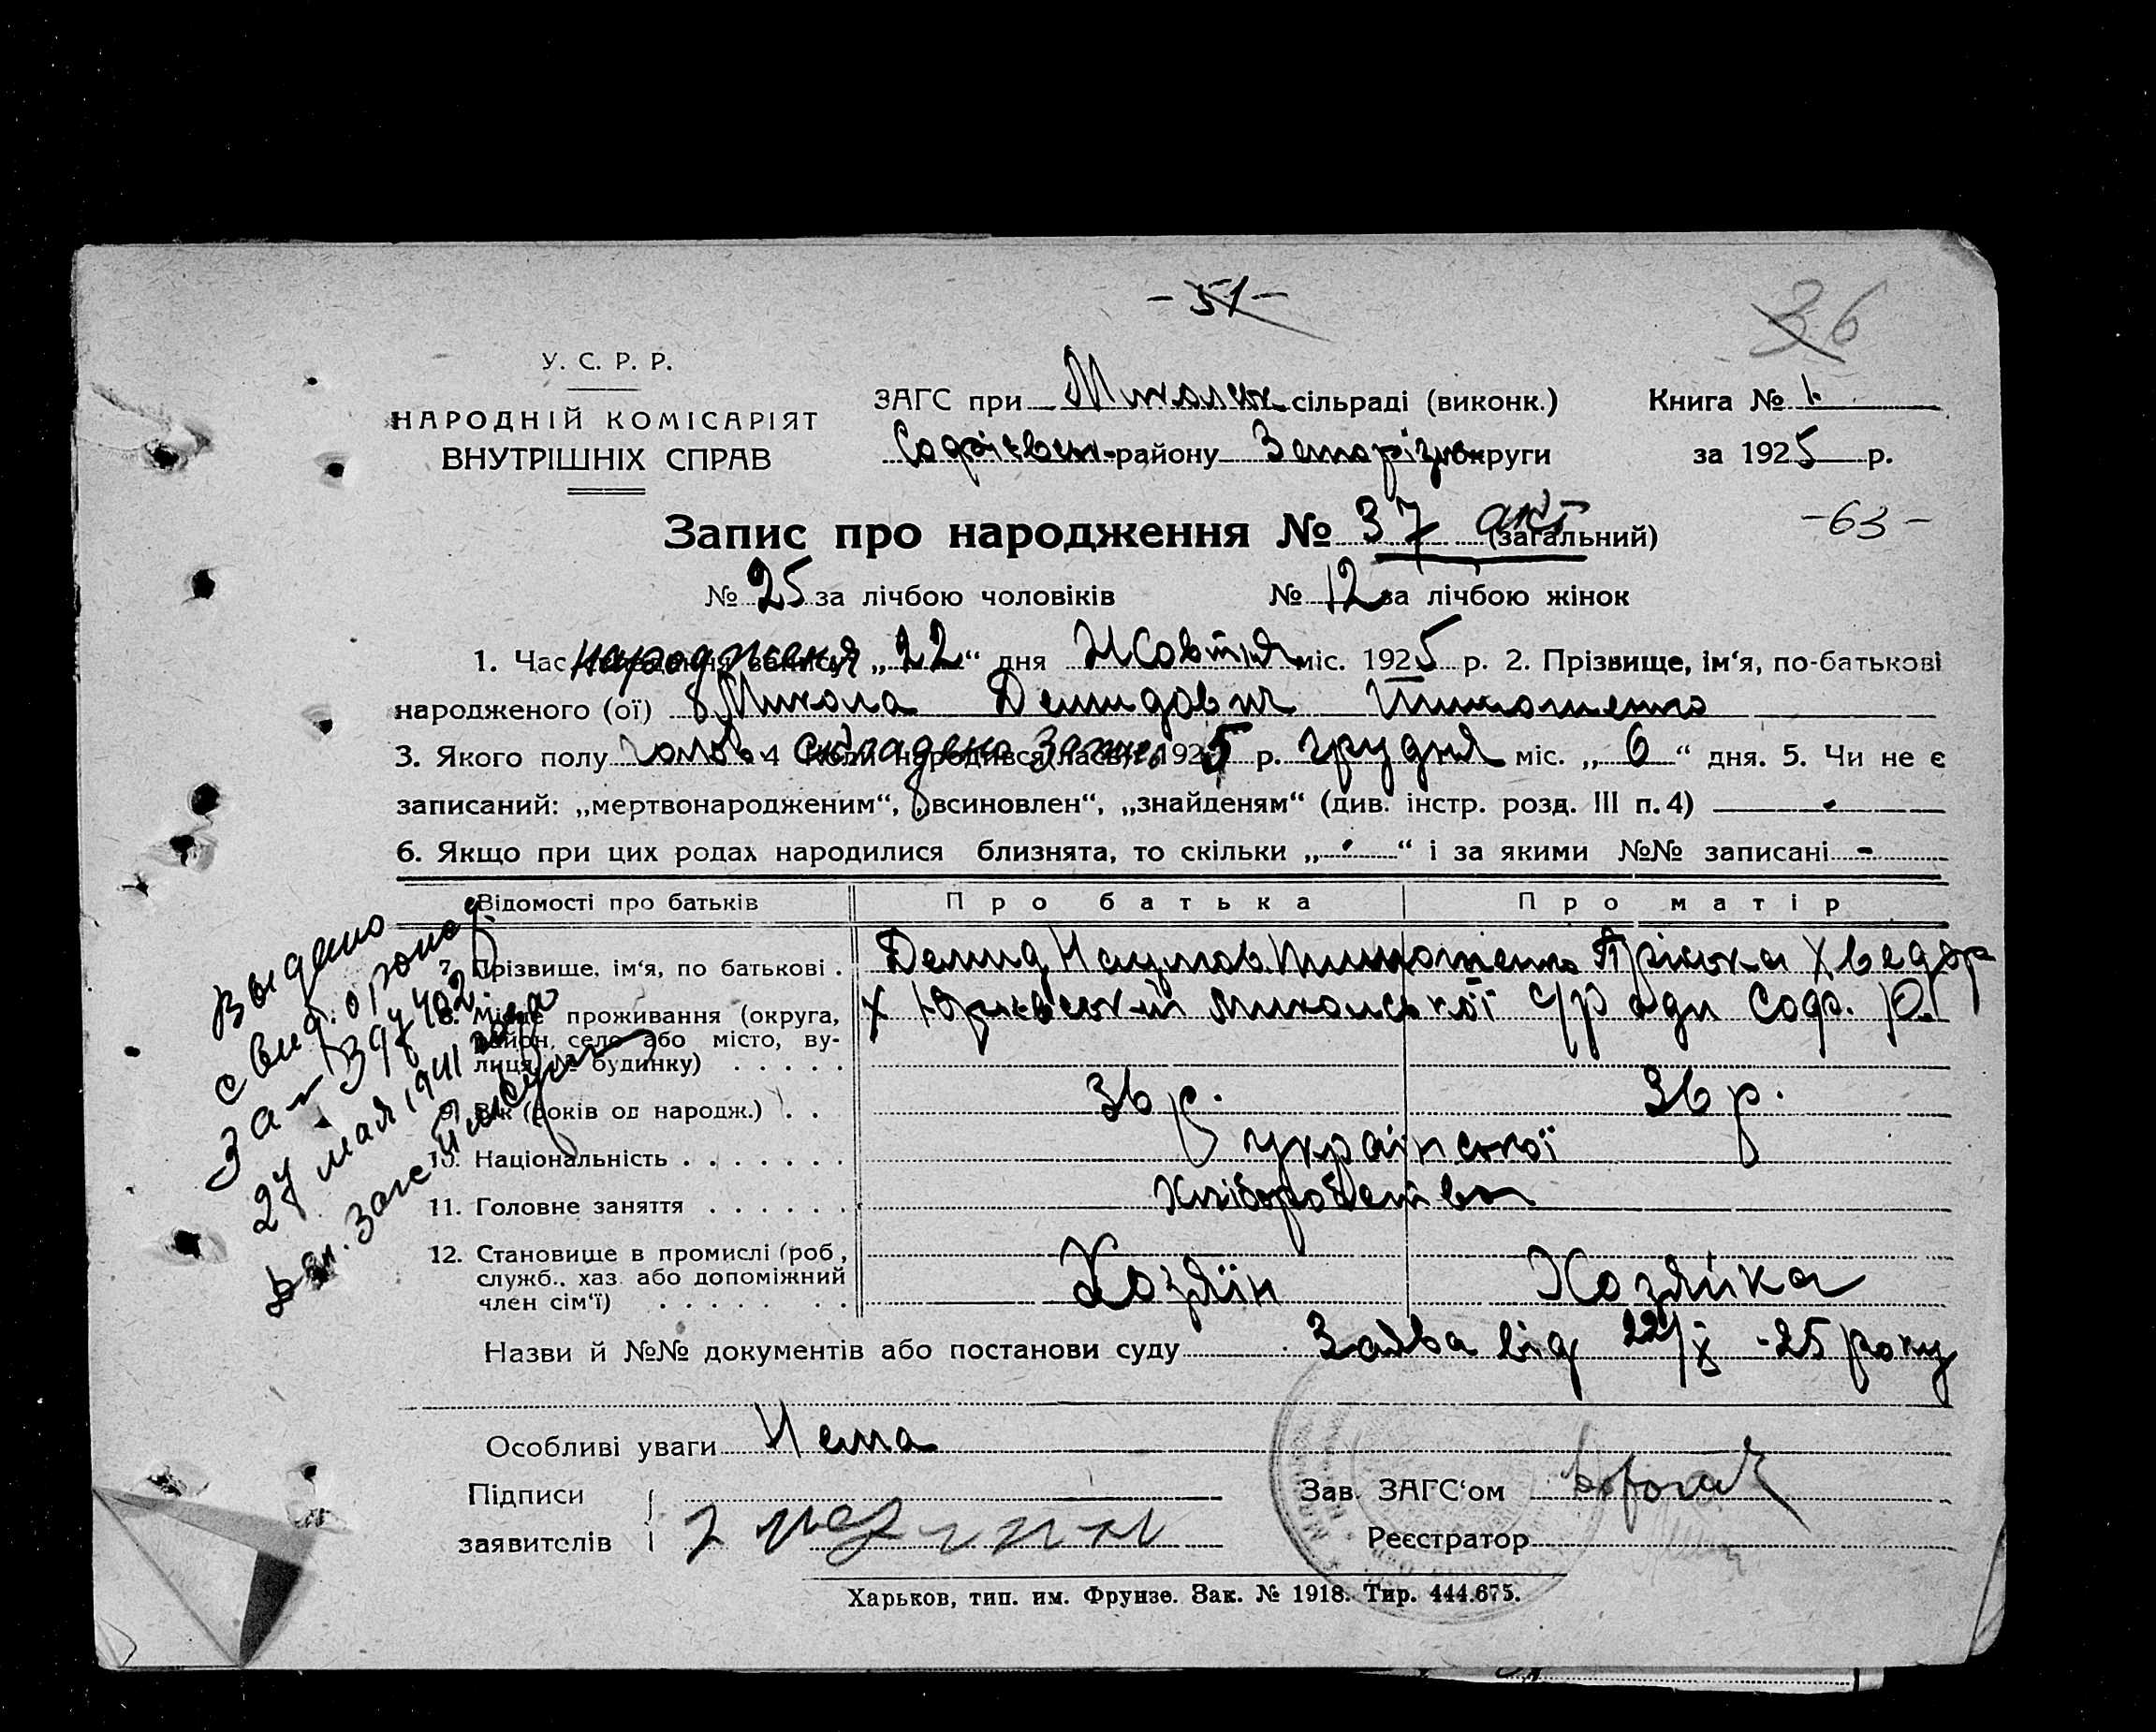 - 51 -
36
У. С. Р. Р.
НАРОДНІЙ КОМІСАРІЯТ
ВНУТРІШНІХ СПРАВ
ЗАГС при сільраді (виконк.)
Книга № 1
району округи
за 1925 р.
Запис про народження № 37 акт (загальний)
- 63 -
№ 25 за лічбою чоловіків № 12 за лічбою жінок
1. Час народженя „22“ дня Жовтня міс. 1925 р. 2. Прізвище, ім‘я, по-батькові
народженого (ої) Микола Демидович
3. Якого полу Чолов. 4 складено Запис 1925 р. грудня міс. „6“ дня. 5. Чи не є
записаний: „мертвонародженим“, „всиновлен“, „знайденям“ (див. інстр. розд. III п. 4) -
6. Якщо при цих родах народилися близнята, то скільки „-“ і за якими №№ записані -
Відомості про батьків Про батька Про матір
7. Прізвище, ім‘я, по батькові . Демид Наумов. Пріська Хведор
8. Місце проживання (округа,
район, село або місто, ву-
лиця, № будинку) . . . . .
х с/ради Соф. Р.
9. Вік (років од народж.) . . 36 р. 36 р.
10. Національність . . . . . . . української
11. Головне заняття . . . . . . Хліборобство
12. Становище в промислі (роб,
служб., хаз. або допоміжний
член сім‘ї) . . . . . . .
Хозяїн Хозяйка
Назви й №№ документів або постанови суду Заява від 22/X -25 року
Особливі уваги Нема
Підписи
заявителів
Зав. ЗАГС‘ом
Реєстратор
Харьков, тип. им. Фрунзе. Зак. № 1918. Тир. 444.675.
Выдано
свид. о рожд.
За №
27 мая 1941 года